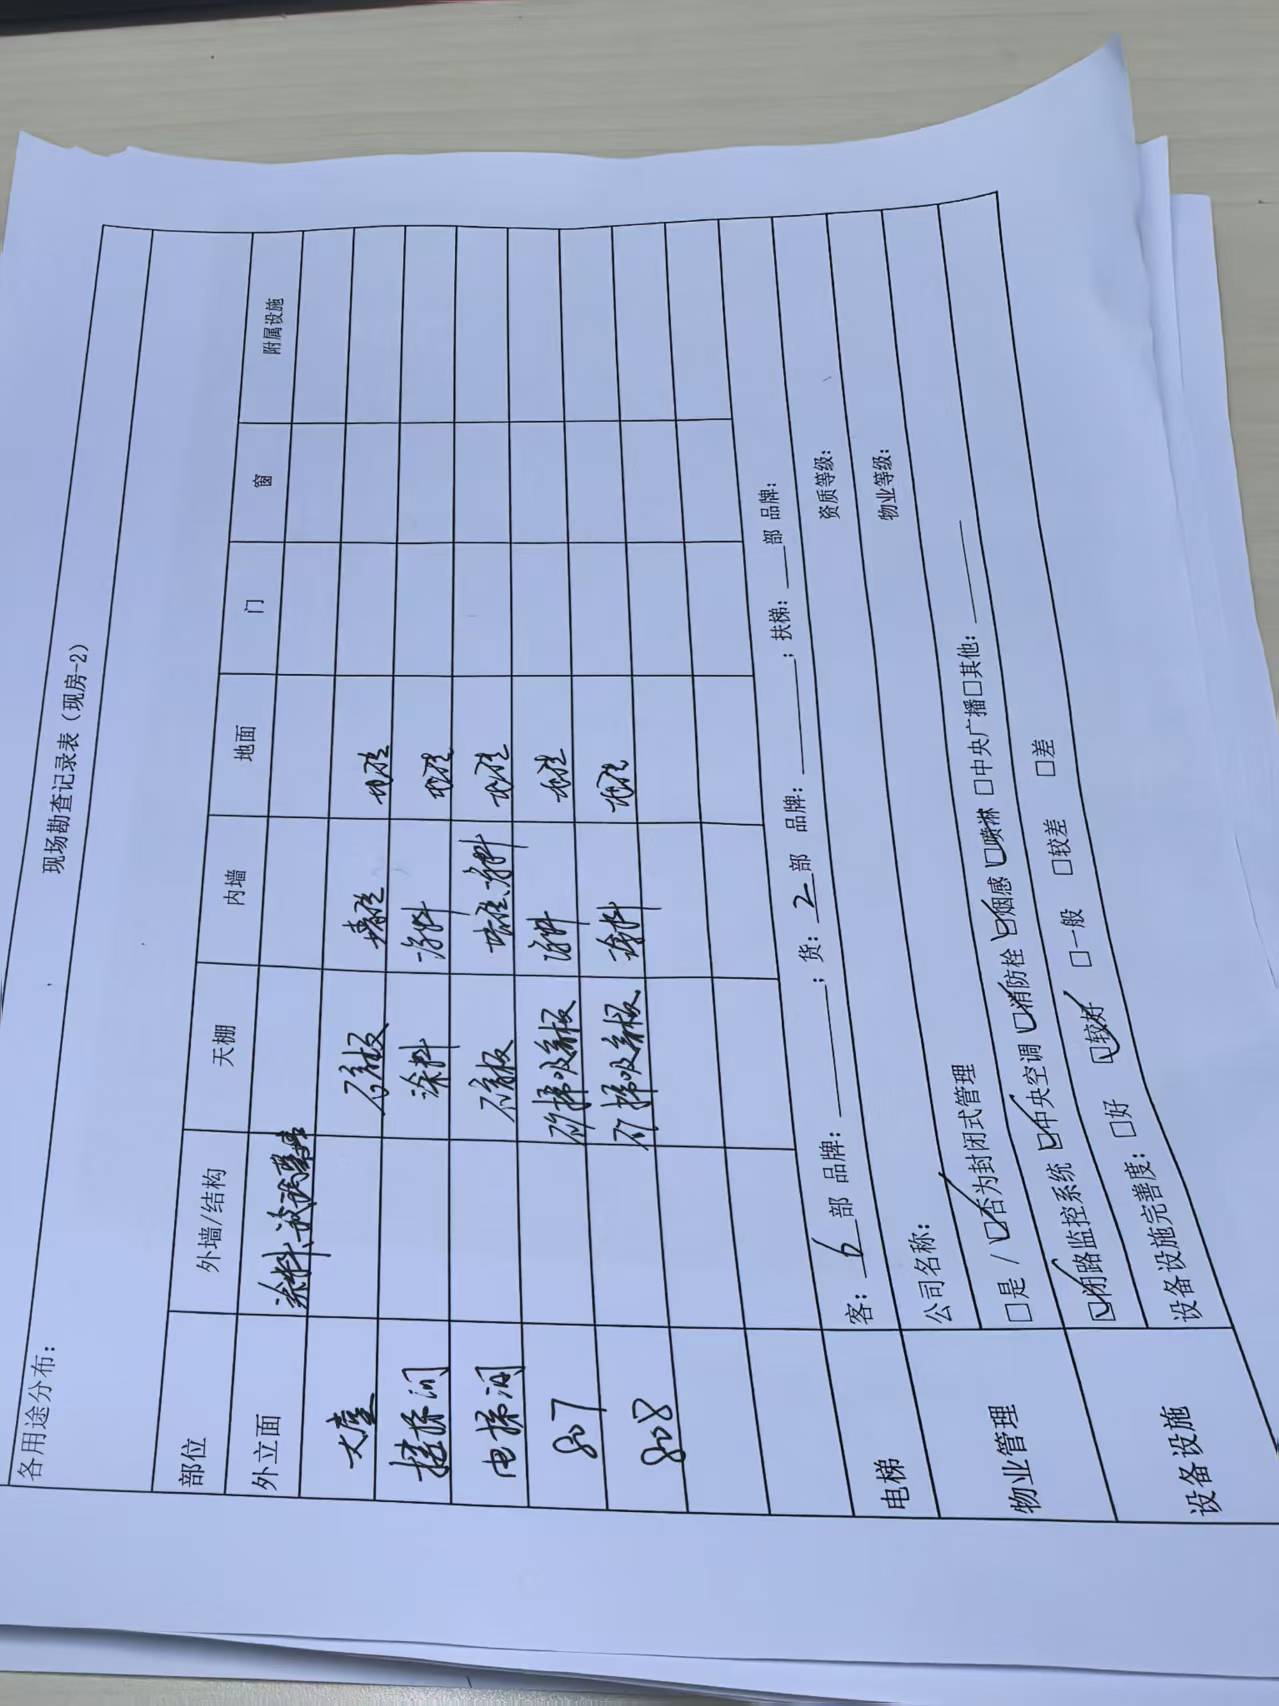 现场勘查记录表（现房-2）
各用途分布：
部位 外墙/结构 天棚 内墙 地面 门 窗 附属设施
外立面 涂料、玻璃幕墙
大堂 石膏板 墙砖 地砖
楼梯间 涂料 涂料 地砖
电梯间 石膏板 墙砖、涂料 地砖
807 矿棉吸音板 涂料 地砖
808 矿棉吸音板 涂料 地砖
电梯 客：6部 品牌：＿＿＿＿；货：2部 品牌：＿＿＿＿；扶梯：＿部 品牌：
物业管理 公司名称： 资质等级：
□是 / ☑否为封闭式管理 物业等级：
设备设施 ☑闭路监控系统 ☑中央空调 ☑消防栓 ☑烟感 ☑喷淋 □中央广播 □其他：＿＿＿＿
设备设施完善度： □好 ☑较好 □一般 □较差 □差